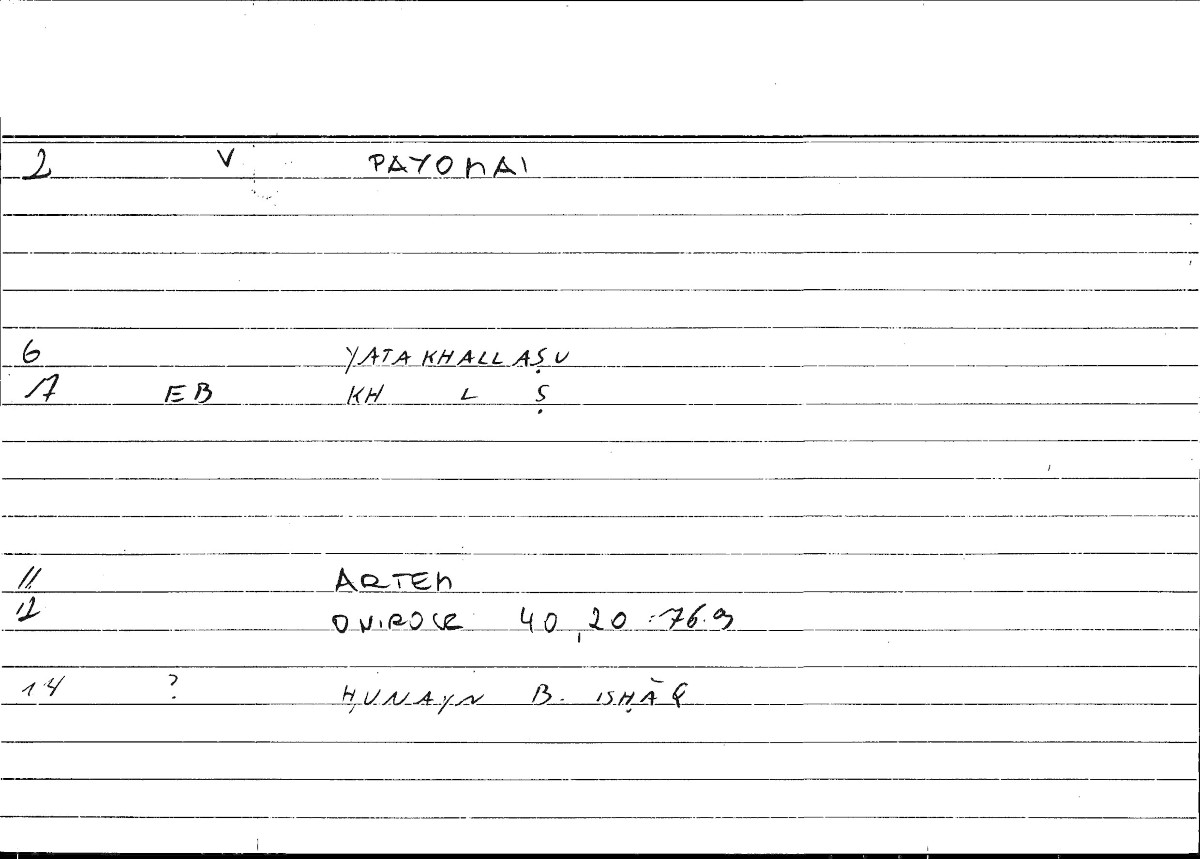 2 V PAYOMAI
6 YATAKHALLAṢU
7 EB KH L Ṣ
11 ARTEM
12 ONIROCR 40,20 76.9
14 ? ḤUNAYN B. ISḤĀQ